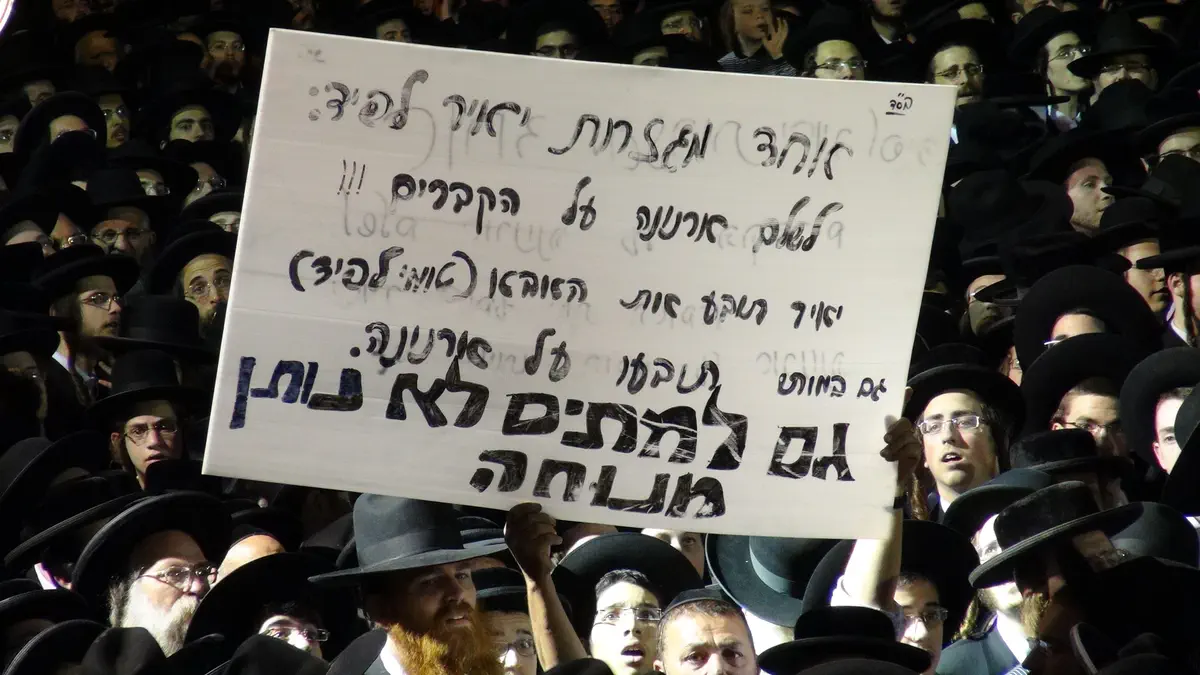 בס"ד
אחד מגזרות יאיר לפיד:
לשלם ארנונה על הקברים !!!
יאיר תובע את האבא (טומי לפיד)
גם במותו תובעו על ארנונה.
גם למתים לא נותן
מנוחה